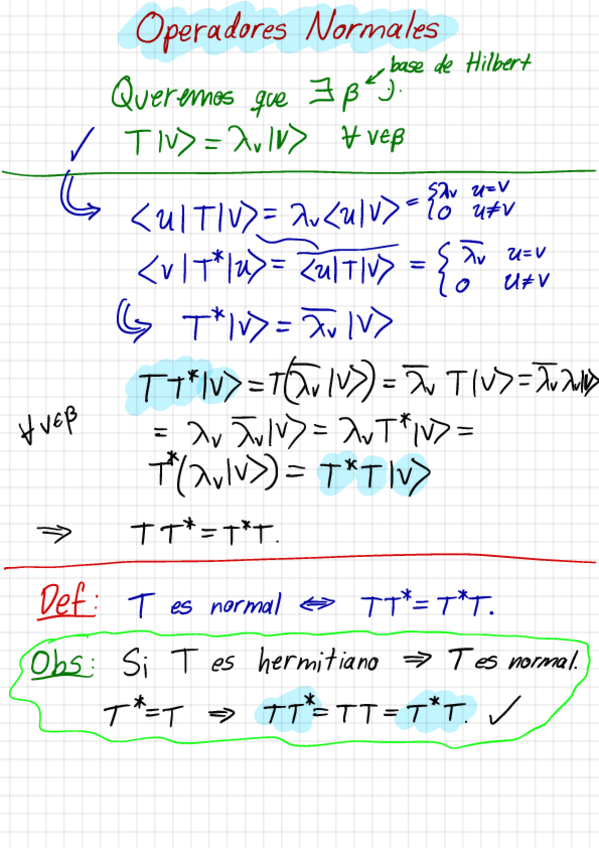 Operadores Normales
base de Hilbert
Queremos que ∃ β ).
✓ T|v> = λᵥ|v> ∀ v∈β
<u|T|v> = λᵥ<u|v> = { λᵥ u=v
0 u≠v
<v|T*|u> = \overline{<u|T|v>} = { \overline{λᵥ} u=v
0 u≠v
T*|v> = \overline{λᵥ}|v>
TT*|v> = T(\overline{λᵥ}|v>) = \overline{λᵥ} T|v> = \overline{λᵥ} λᵥ|v>
∀ v∈β = λᵥ \overline{λᵥ}|v> = λᵥT*|v> =
T*(λᵥ|v>) = T*T|v>
⇒ TT* = T*T.
Def: T es normal ⇔ TT* = T*T.
Obs: Si T es hermitiano ⇒ T es normal.
T* = T ⇒ TT* = TT = T*T. ✓